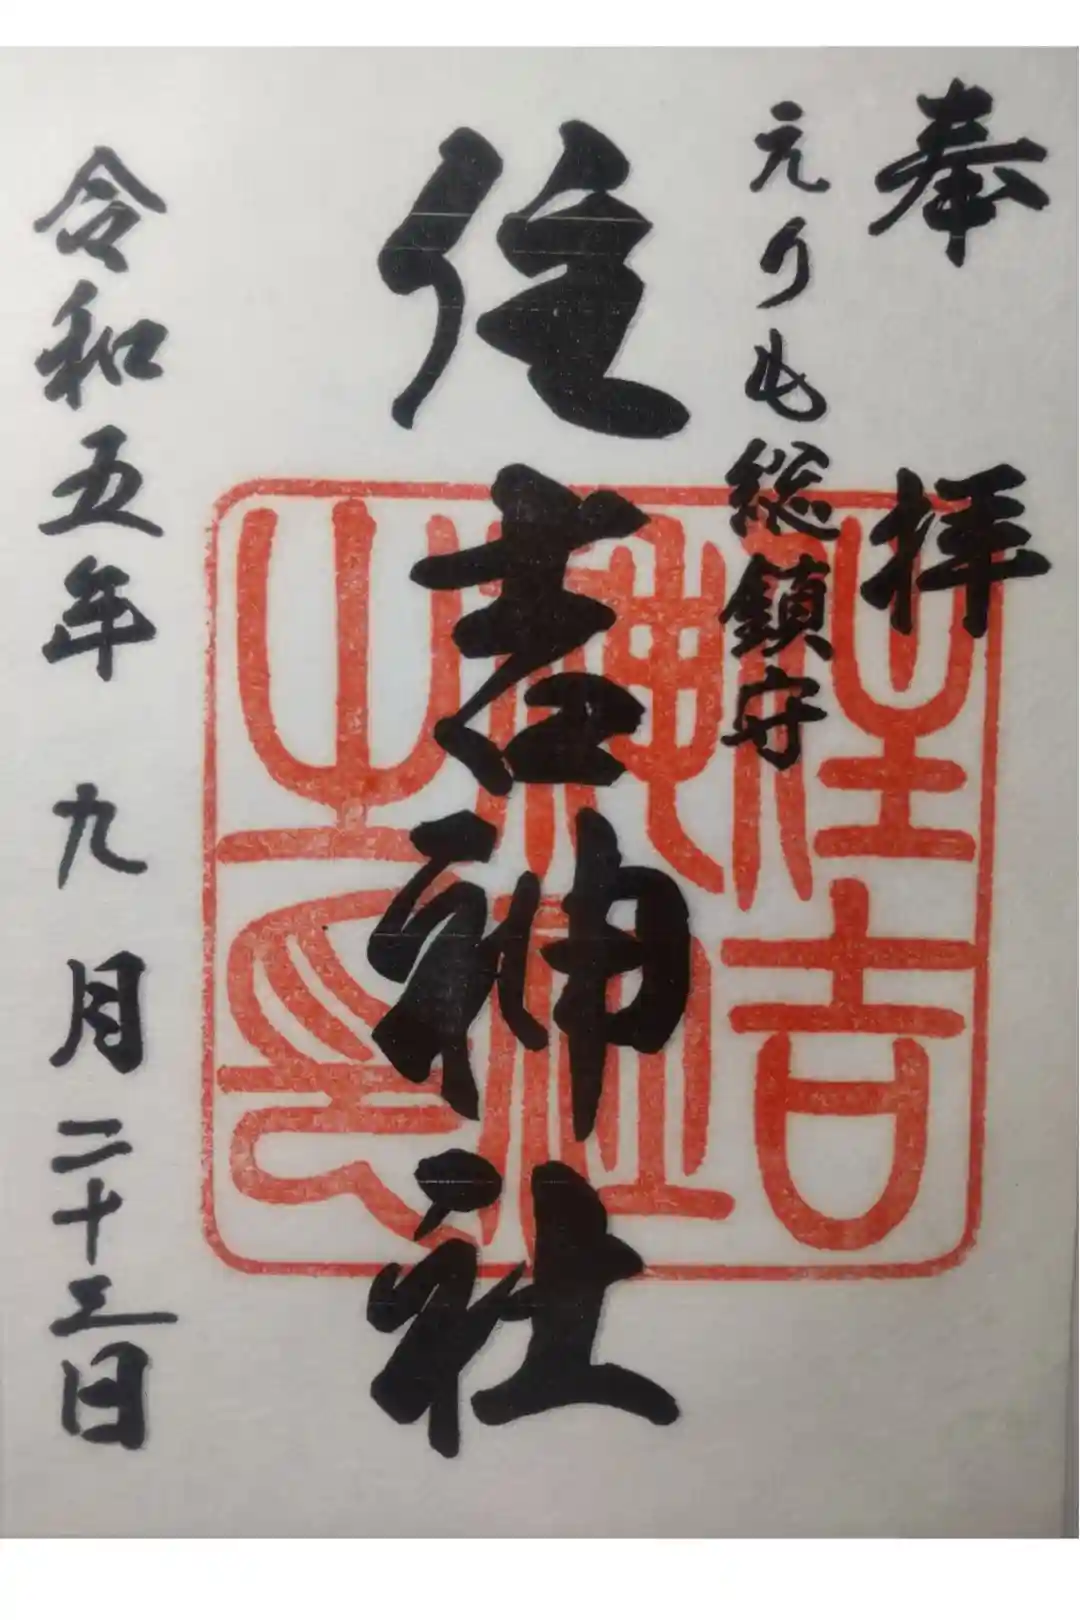 奉拝
えりも総鎮守
住吉神社
令和五年九月二十三日
住吉
神社
之印